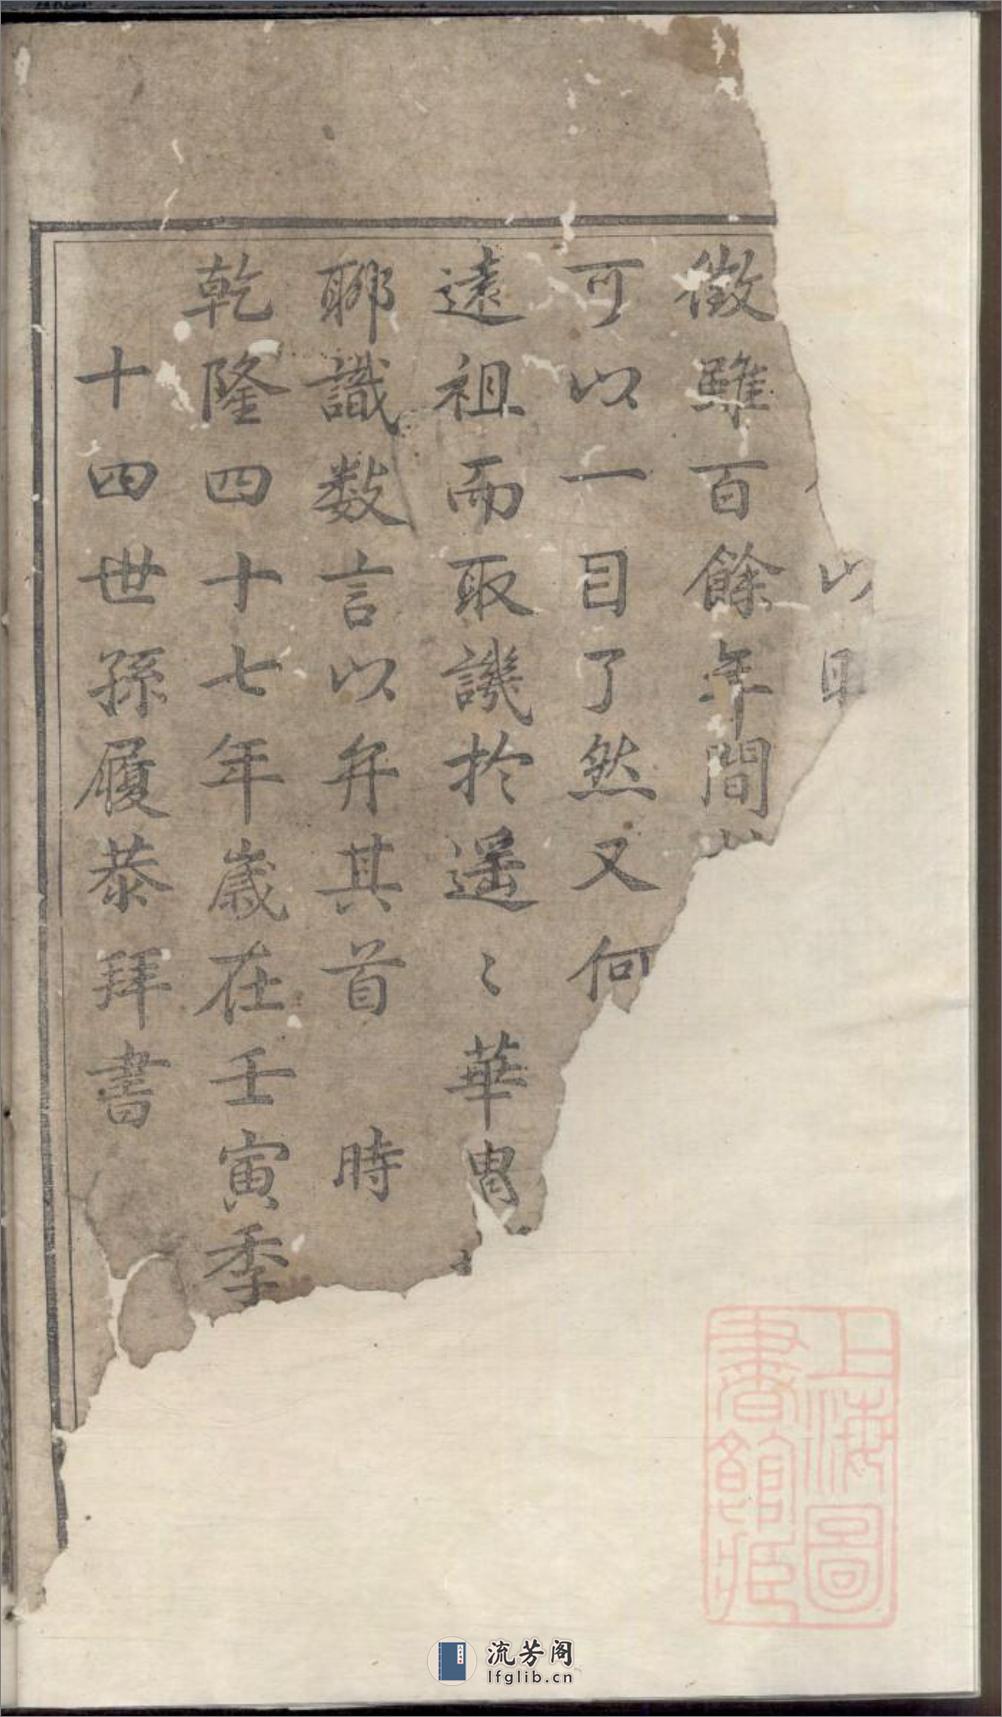 以明
徴雖百餘年間
可以一目了然又何
遠祖而取譏於遥〻華胄
聊識数言以弁其首　時
乾隆四十七年歲在壬寅季
十四世孫履恭拜書
上海圖
書館藏
流芳阁
lfglib.cn